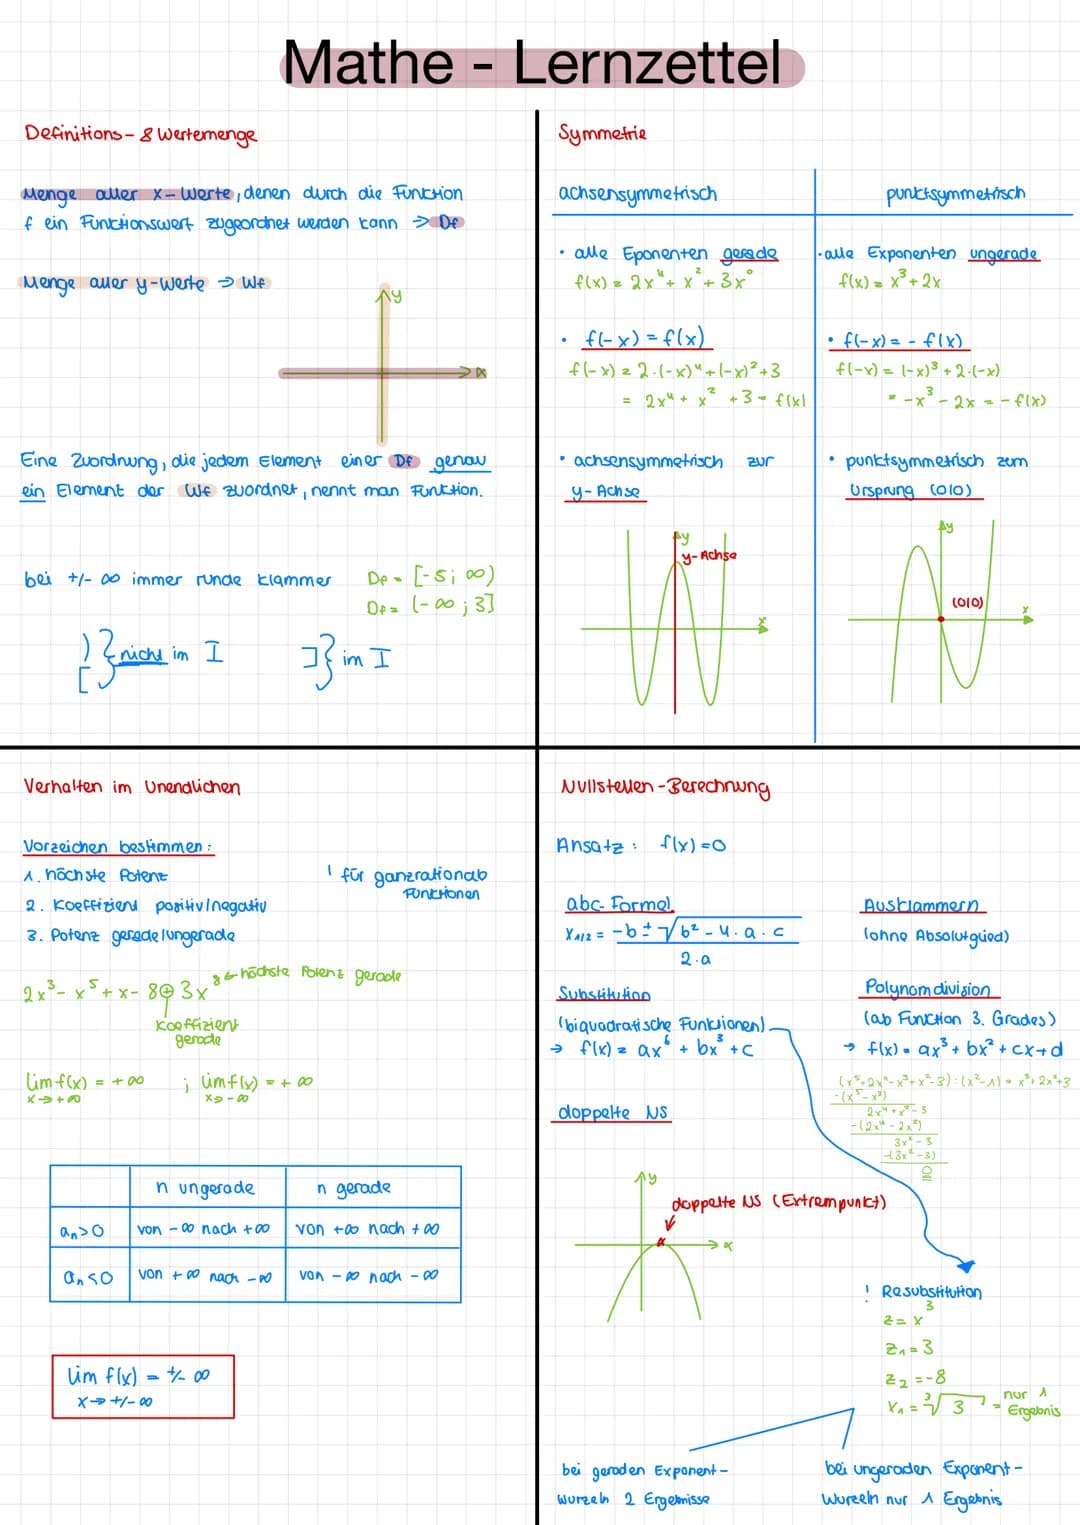 Mathe - Lernzettel
Definitions- & Wertemenge
Menge aller x-Werte, denen durch die Funktion
f ein Funktionswert zugeordnet werden kann → Df
Menge aller y-Werte → Wf
y
x
Eine Zuordnung, die jedem Element einer Df genau
ein Element der Wf zuordnet, nennt man Funktion.
bei +/- ∞ immer runde Klammer
Df = [-5; ∞)
Df = (-∞; 3]
) [ } nicht im I
] } im I
Symmetrie
achsensymmetrisch
• alle Eponenten gerade
f(x) = 2x⁴ + x² + 3x⁰
• f(-x) = f(x)
f(-x) = 2·(-x)⁴ + (-x)² + 3
= 2x⁴ + x² + 3 = f(x)
• achsensymmetrisch zur
y-Achse
y
y-Achse
x
punktsymmetrisch
• alle Exponenten ungerade
f(x) = x³ + 2x
• f(-x) = - f(x)
f(-x) = (-x)³ + 2·(-x)
= -x³ - 2x = - f(x)
• punktsymmetrisch zum
Ursprung (0|0)
y
(0|0)
x
Verhalten im Unendlichen
Vorzeichen bestimmen:
1. höchste Potenz
2. Koeffizient positiv/negativ
3. Potenz gerade/ungerade
! für ganzrationale
Funktionen
2x³ - x⁵ + x - 8 ⊕ 3x⁸ ← höchste Potenz gerade
Koeffizient
gerade
lim f(x) = +∞ ; lim f(x) = +∞
x→+∞ x→-∞
n ungerade n gerade
aₙ>0 von -∞ nach +∞ von +∞ nach +∞
aₙ<0 von +∞ nach -∞ von -∞ nach -∞
lim f(x) = +/- ∞
x→+/-∞
Nullstellen-Berechnung
Ansatz: f(x) = 0
abc-Formel
x₁/₂ = -b ± √b² - 4·a·c
2·a
Substitution
(biquadratische Funktionen)
→ f(x) = ax⁶ + bx³ + c
Ausklammern
(ohne Absolutglied)
Polynomdivision
(ab Funktion 3. Grades)
→ f(x) = ax³ + bx² + cx + d
(x⁵+2x⁴-x³+x²-3):(x²-1) = x³+2x²+3
-(x⁵-x³)
2x⁴+x²-3
-(2x⁴-2x²)
3x²-3
-(3x²-3)
0
doppelte NS
y
doppelte NS (Extrempunkt)
x
! Resubstitution
z = x³
z₁ = 3
z₂ = -8
x₁ = ³√3 = nur 1
Ergebnis
bei geraden Exponent-
wurzeln 2 Ergebnisse
bei ungeraden Exponent-
wurzeln nur 1 Ergebnis